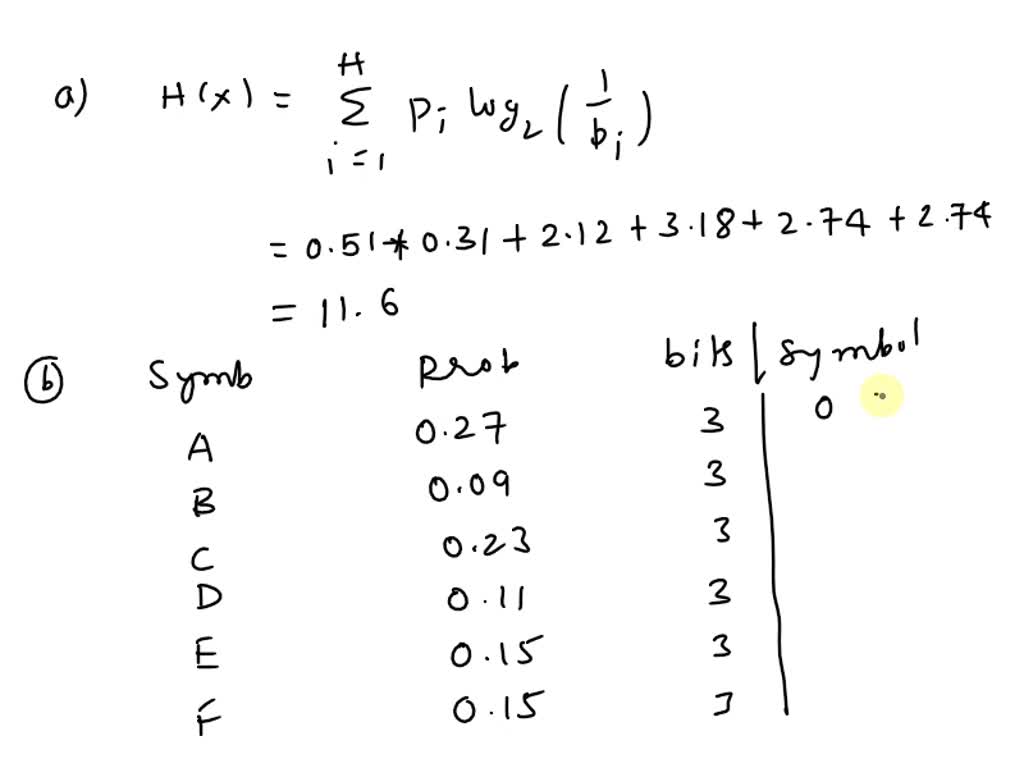 a) H(x) = H Σ i=1 Pi log2 (1/bi)
= 0.51 * 0.31 + 2.12 + 3.18 + 2.74 + 2.74
= 11.6
(b) Symb Prob bits | Symbol
A 0.27 3 0
B 0.09 3
C 0.23 3
D 0.11 3
E 0.15 3
F 0.15 3